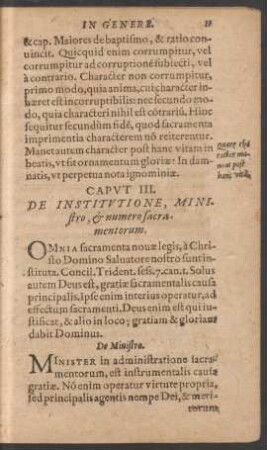 IN GENERE.
& cap. Maiores de baptismo, & ratio con-
uincit. Quicquid enim corrumpitur, vel
corrumpitur ad corruptionē subiecti, vel
à contrario. Character non corrumpitur,
primo modo, quia anima, cui character in-
hæret est incorruptibilis: nec secundo mo-
do, quia characteri nihil est cōtrariū. Hinc
sequitur secundūm fidē, quod sacramenta
imprimentia characterem nō reiterentur.
Manet autem character post hanc vitam in
beatis, vt sit ornamentum gloriæ: In dam-
natis, vt perpetua nota ignominiæ.
Quare cha
racter ma-
neat post
hanc vitā.
CAPVT III.
DE INSTITVTIONE, MINI-
stro, & numero sacra-
mentorum.
OMNIA sacramenta nouæ legis, à Chri-
sto Domino Saluatore nostro sunt in-
stituta. Concil. Trident. sess. 7. can. 1. Solus
autem Deus est, gratiæ sacramentalis causa
principalis. Ipse enim interius operatur, ad
effectum sacramenti. Deus enim est qui iu-
stificat, & alio in loco; gratiam & gloriam
dabit Dominus.
De Ministro.
MINISTER in administratione sacra-
mentorum, est instrumentalis causa
gratiæ. Nō enim operatur virtute propria,
sed principalis agentis nempe Dei, & meri-